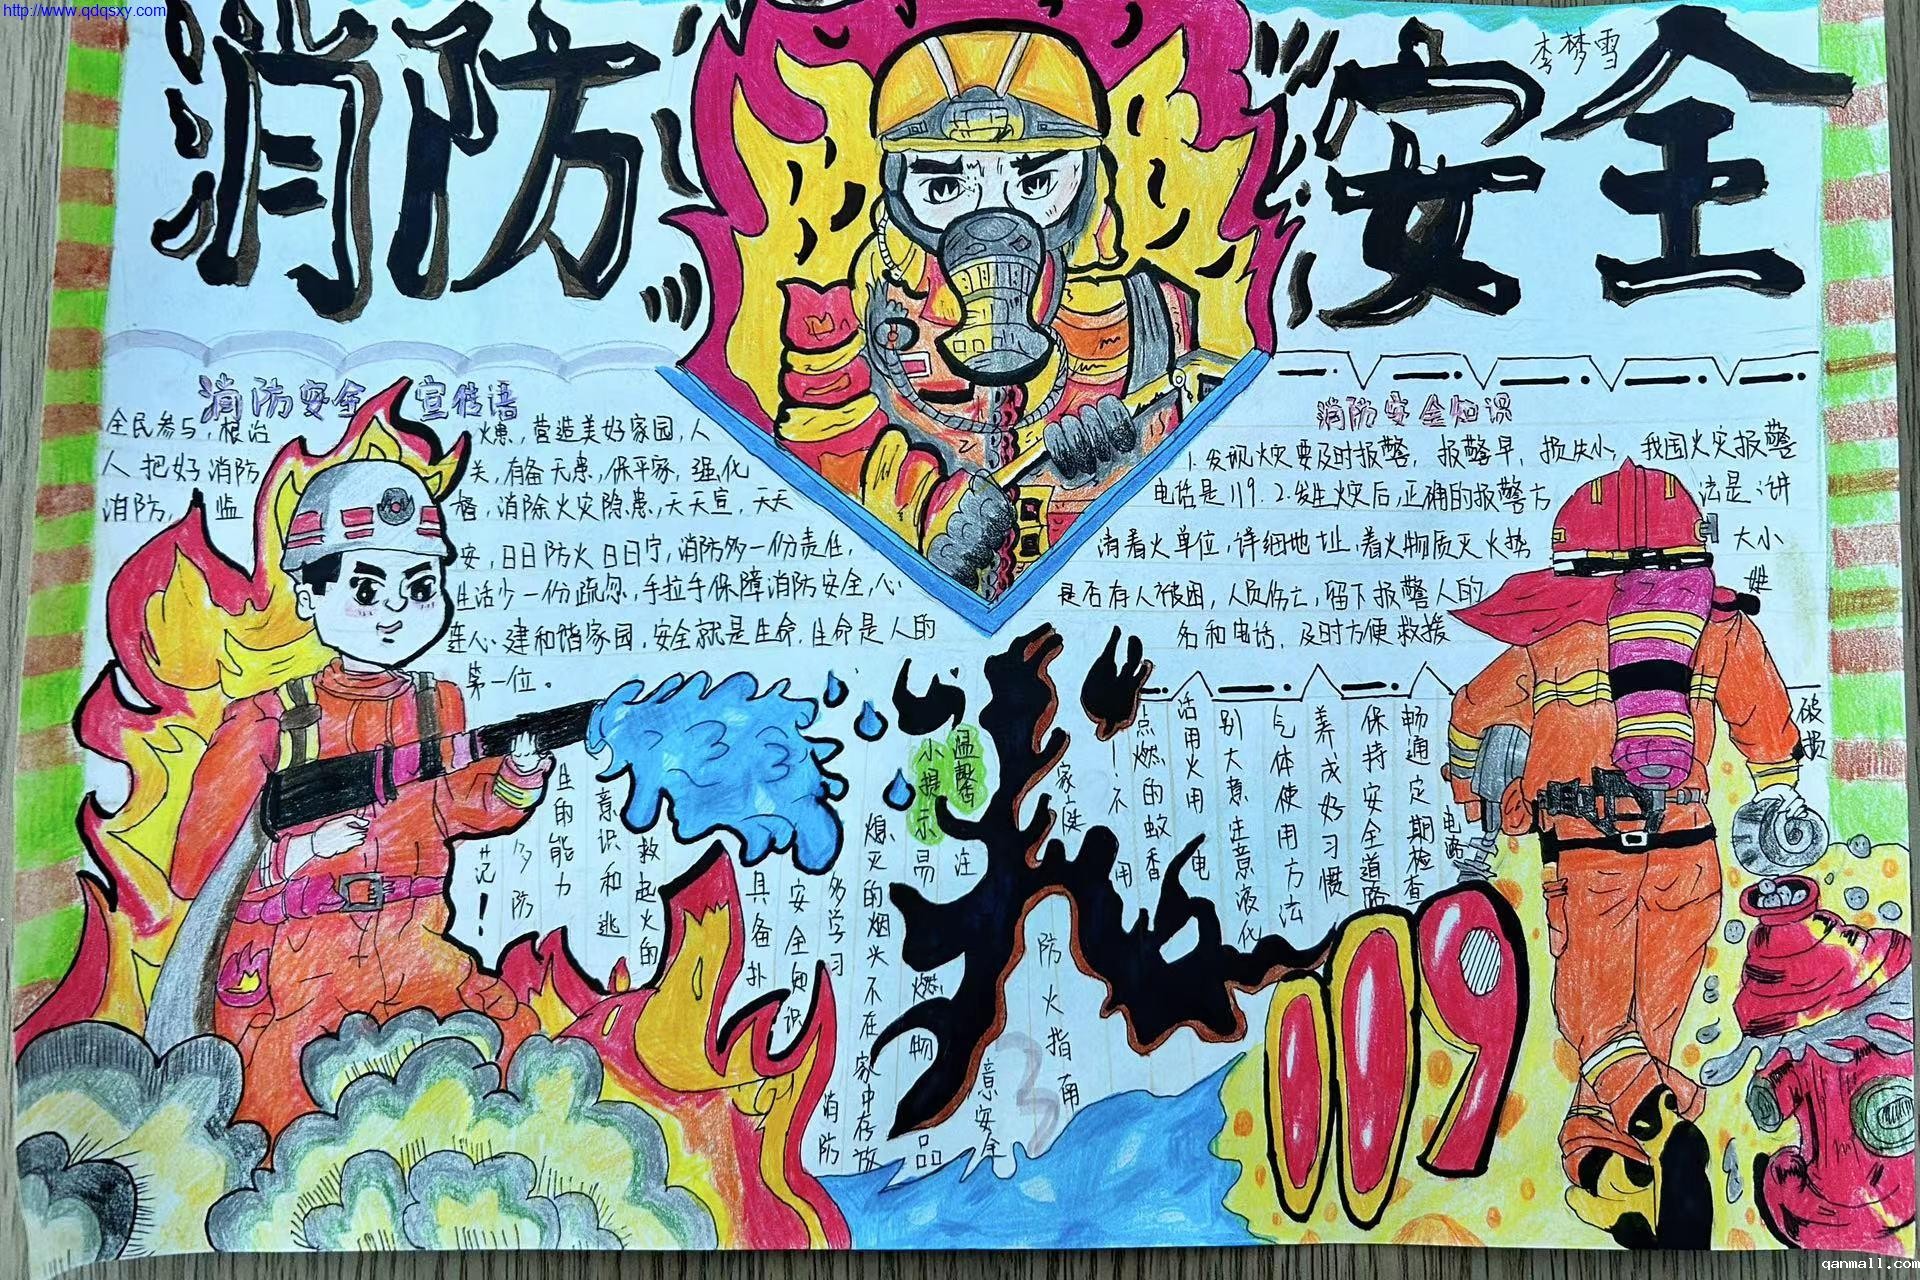 http://www.qdqsxy.com
消防安全
李梦雪
消防安全宣传语
全民参与,根治 燣,营造美好家园,人
人把好消防 关,有备无患,保平家,强化
消防, 监 督,消除火灾隐患,天天宣,天天
安,日日防火日日宁,消防多一份责任,
生活少一份疏忽,手拉手保障消防安全,心
连心建和谐家园,安全就是生命,生命是人的
第一位。
消防安全知识
1.发现火灾要及时报警,报警早,损失小,我国火灾报警
电话是119.2.发生火灾后,正确的报警方 法是:讲
清着火单位,详细地址,着火物质灭火势 大小
是否有人被困,人员伤亡,留下报警人的 姓
名和电话,及时方便救援
温馨
小提示
家庭
防火指南
破损
电路
畅通定期检查
保持安全道路
养成好习惯
气体使用方法
别大意注意液化
活用火用电
点燃的蚊香
!不用
注意安全
易燃物品
熄灭的烟头不在家中存放
多学习消防
安全知识
具备扑
救起火的
意识和逃
生的能力
多防
范!
119
qanmall.com